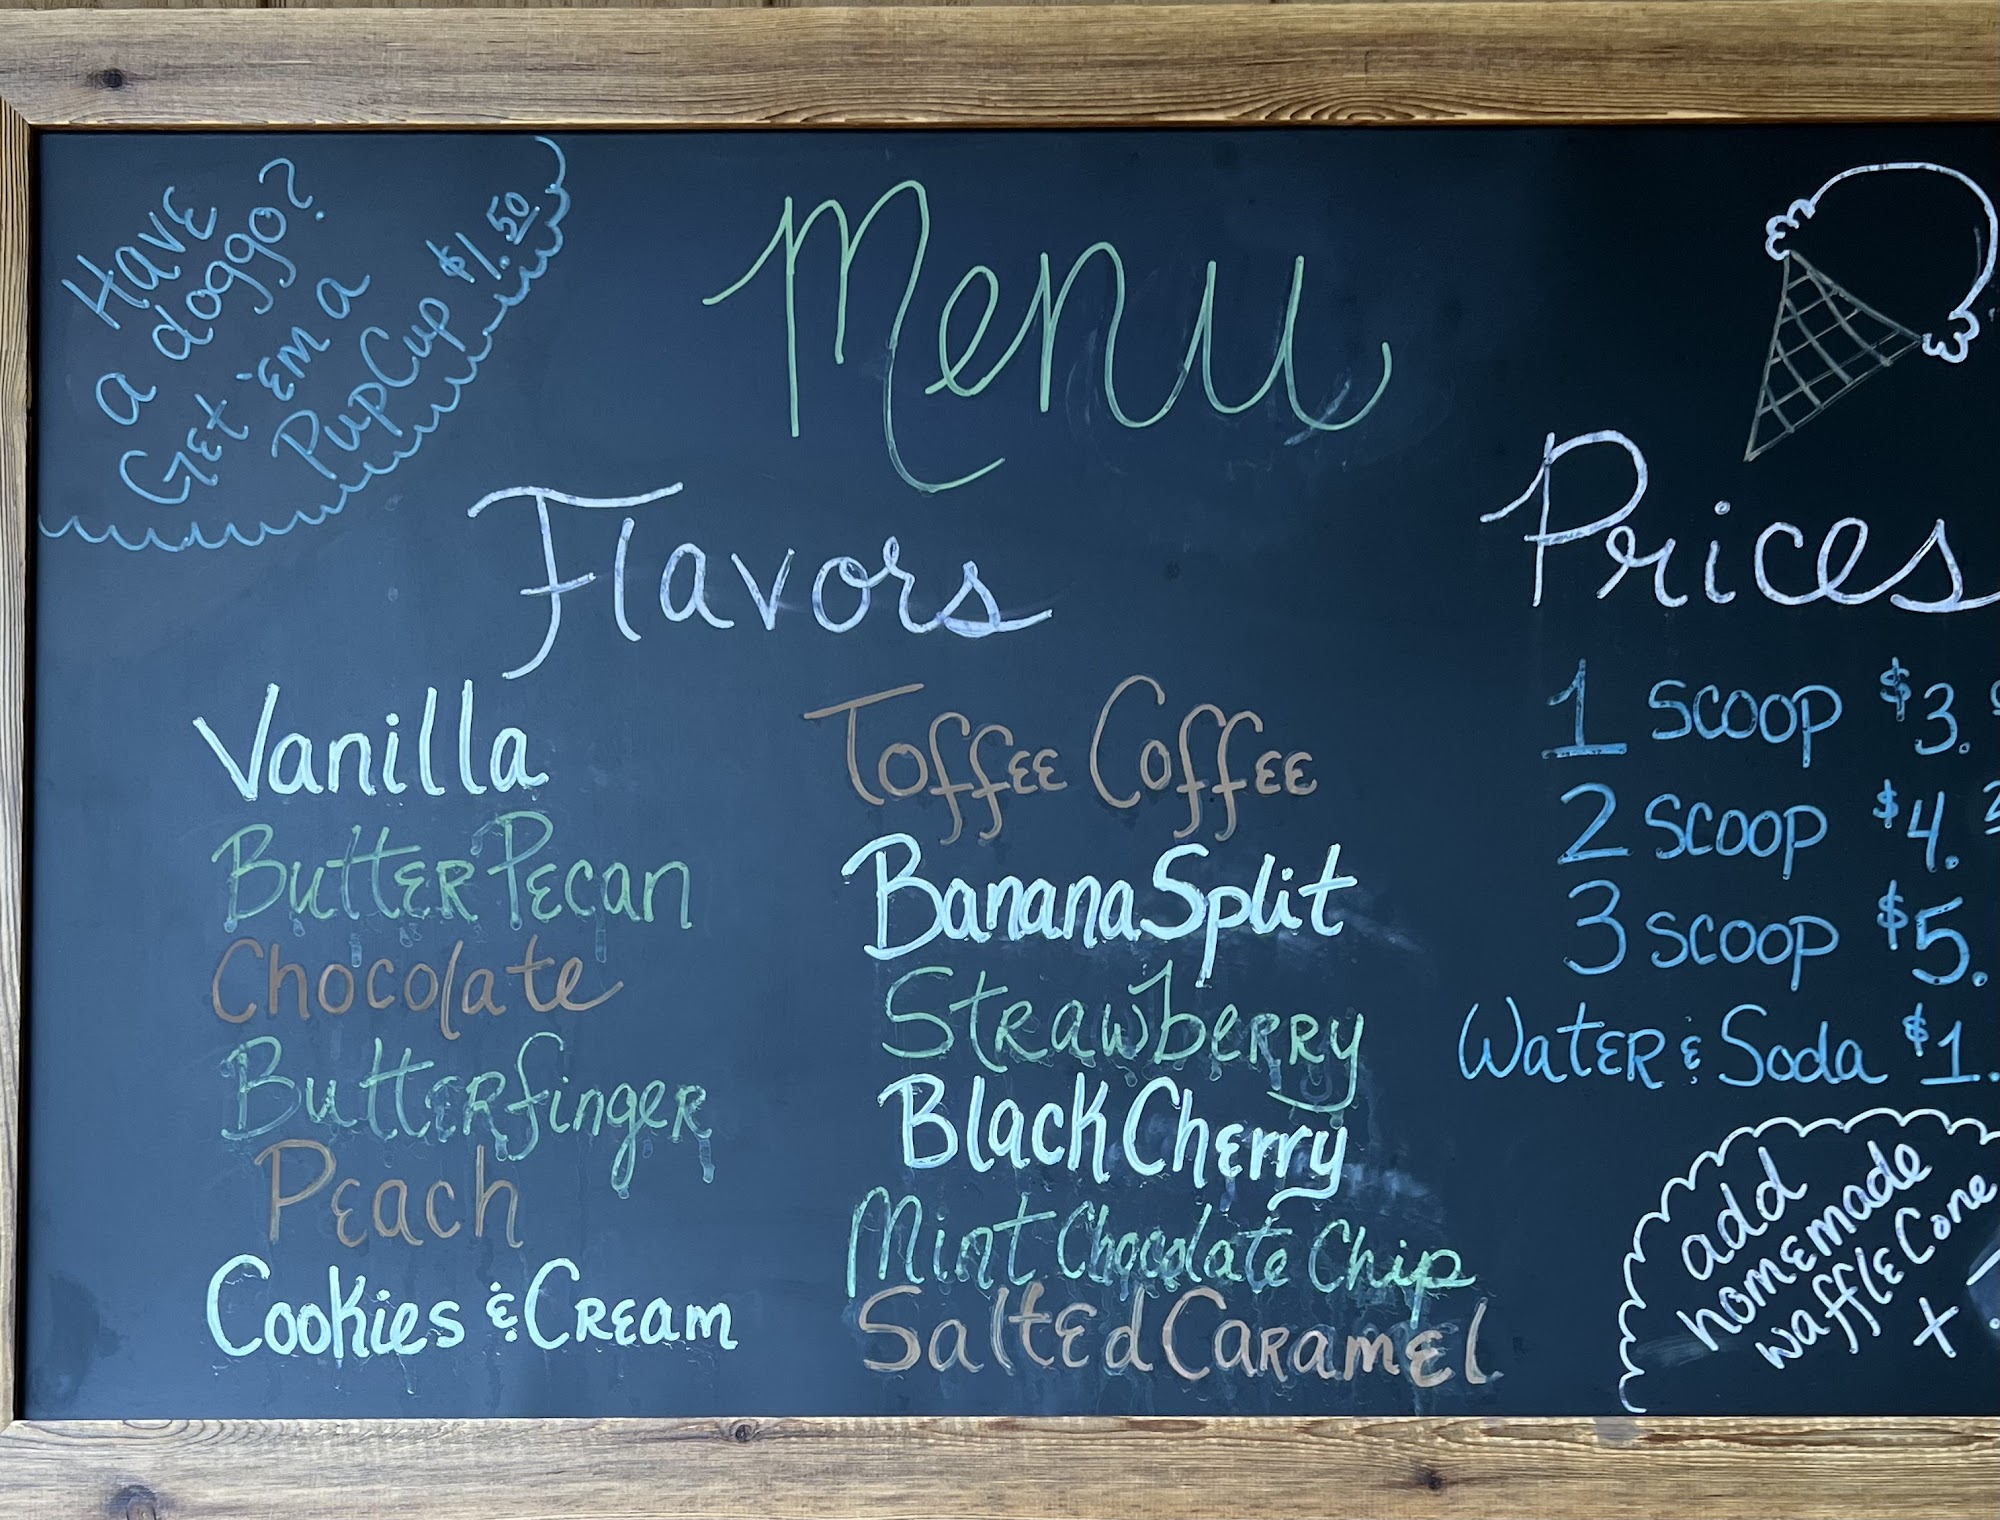 Have
a doggo?
Get 'em a
Pup Cup $1.50
Menu
Flavors
Vanilla
Butter Pecan
Chocolate
Butterfinger
Peach
Cookies & Cream
Toffee Coffee
Banana Split
Strawberry
Black Cherry
Mint Chocolate Chip
Salted Caramel
Prices
1 scoop $3.
2 scoop $4.
3 scoop $5.
Water & Soda $1.
add
homemade
waffle Cone
+